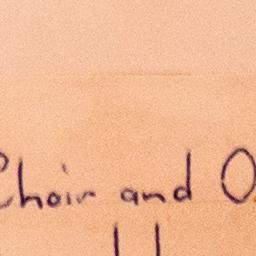 Choir and O